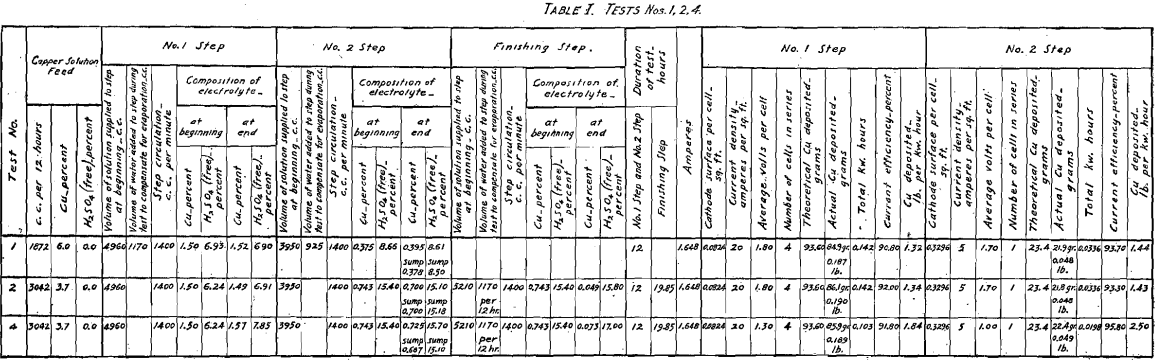 TABLE I. TESTS Nos. 1, 2, 4.
Test No.
Copper Solution Feed
c.c. per 12 hours
Cu percent
H2SO4 (free), percent
No. 1 Step
Volume of solution supplied to step at beginning - c.c.
Volume of water added to step during test to compensate for evaporation, c.c.
Step circulation - c.c. per minute
Composition of electrolyte -
at beginning
Cu - percent
H2SO4 (free) - percent
at end
Cu - percent
H2SO4 (free) - percent
No. 2 Step
Volume of solution supplied to step at beginning - c.c.
Volume of water added to step during test to compensate for evaporation, c.c.
Step circulation - c.c. per minute
Composition of electrolyte -
at beginning
Cu - percent
H2SO4 (free) - percent
at end
Cu - percent
H2SO4 (free) - percent
Finishing Step.
Volume of solution supplied to step at beginning - c.c.
Volume of water added to step during test to compensate for evaporation, c.c.
Step circulation - c.c. per minute
Composition of electrolyte -
at beginning
Cu - percent
H2SO4 (free) - percent
at end
Cu - percent
H2SO4 (free) - percent
Duration of test - hours
No. 1 Step and No. 2 Step
Finishing Step
Amperes
No. 1 Step
Cathode surface per cell - sq. ft.
Current density - amperes per sq. ft.
Average volts per cell
Number of cells in series
Theoretical Cu deposited - grams
Actual Cu deposited - grams
Total kw. hours
Current efficiency, percent
Cu deposited - lb. per kw. hour
No. 2 Step
Cathode surface per cell - sq. ft.
Current density - amperes per sq. ft.
Average volts per cell
Number of cells in series
Theoretical Cu deposited - grams
Actual Cu deposited - grams
Total kw. hours
Current efficiency - percent
Cu deposited - lb. per kw. hour
1 1872 6.0 0.0 4960 1170 1400 1.50 6.93 1.52 6.90 3950 925 1400 0.375 8.66 0.395 8.61 12 1.648 0.0824 20 1.80 4 93.60 84.9 gr. 0.142 90.80 1.32 0.3296 5 1.70 1 23.4 21.9 gr. 0.0336 93.70 1.44
sump sump 0.187 0.048
0.378 8.50 lb. lb.
2 3042 3.7 0.0 4960 1400 1.50 6.24 1.49 6.91 3950 1400 0.743 15.40 0.700 15.10 5210 1170 1400 0.743 15.40 0.049 15.80 12 19.85 1.648 0.0824 20 1.80 4 93.60 86.1 gr. 0.142 92.00 1.34 0.3296 5 1.70 1 23.4 21.8 gr. 0.0336 93.30 1.43
sump sump per 0.190 0.048
0.700 15.18 12 hr. lb. lb.
4 3042 3.7 0.0 4960 1400 1.50 6.24 1.57 7.85 3950 1400 0.743 15.40 0.725 15.70 5210 1170 1400 0.743 15.40 0.073 17.00 12 19.85 1.648 0.0824 20 1.30 4 93.60 85.9 gr. 0.103 91.80 1.84 0.3296 5 1.00 1 23.4 22.4 gr. 0.0198 95.80 2.50
sump sump per 0.189 0.049
0.687 15.10 12 hr. lb. lb.